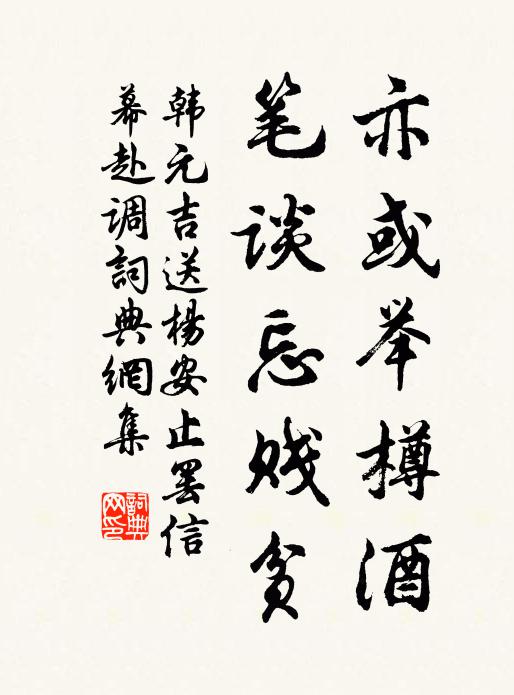 亦或举樽酒
笔谈忘贱贫
韩元吉送楊安止罢信
幕赴调詞典網集
詞典
网印